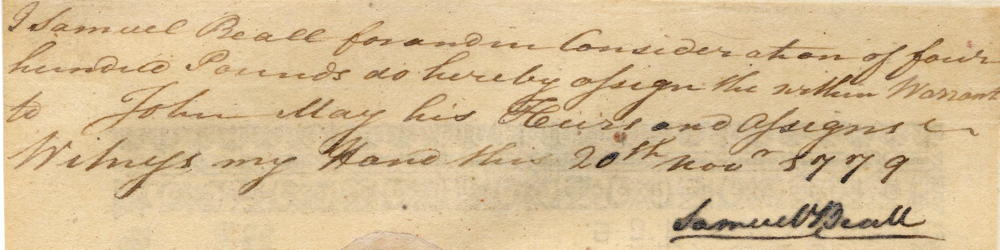 I Samuel Beall for and in Consideration of four
hundred Pounds do hereby assign the within Warrant
to John May his Heirs and Assigns
Witness my Hand this 20th Novr 1779
Samuel Beall